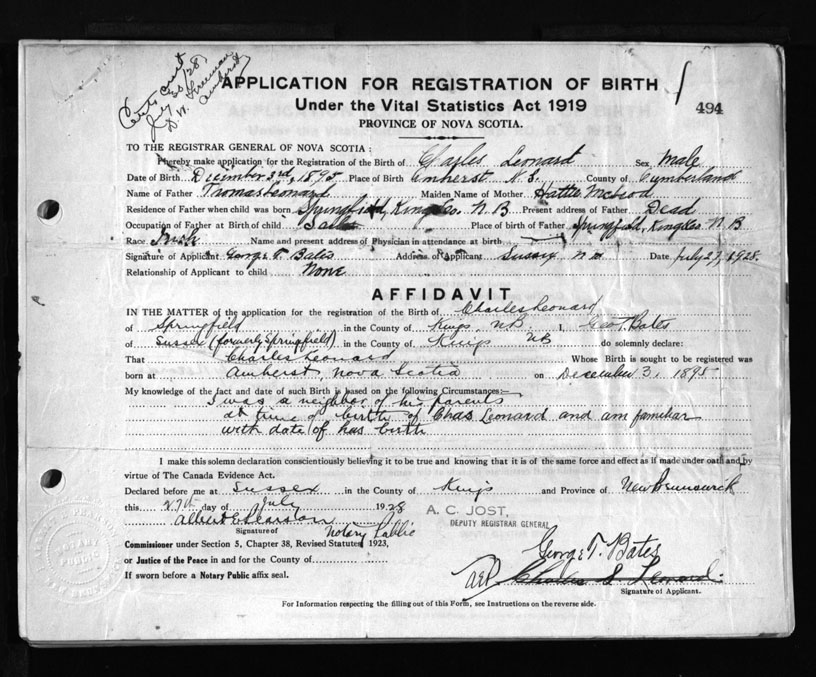 Certs cert
July 30/28,
D W Freeman
Amherst
APPLICATION FOR REGISTRATION OF BIRTH
494
Under the Vital Statistics Act 1919
PROVINCE OF NOVA SCOTIA.
TO THE REGISTRAR GENERAL OF NOVA SCOTIA:
I hereby make application for the Registration of the Birth of Charles Leonard Sex Male
Date of Birth December 3rd, 1895 Place of Birth Amherst N.S. County of Cumberland
Name of Father Thomas Leonard Maiden Name of Mother Hattie McLeod
Residence of Father when child was born Springfield, Kings Co. N B Present address of Father Dead
Occupation of Father at Birth of child Place of birth of Father Springfield, Kings Co N B
Race Irish Name and present address of Physician in attendance at birth
Signature of Applicant George T. Bates Address of Applicant Sussex N B Date July 27, 1928.
Relationship of Applicant to child None
AFFIDAVIT
IN THE MATTER of the application for the registration of the Birth of Charles Leonard
of Springfield in the County of Kings, NB I, Geo T. Bates
of Sussex (formerly Springfield) in the County of Kings NB do solemnly declare:
That Charles Leonard Whose Birth is sought to be registered was
born at Amherst, Nova Scotia on December 3, 1895
My knowledge of the fact and date of such Birth is based on the following Circumstances:—
I was a neighbor of his parents
at time of birth of Chas Leonard and am familiar
with date of his birth
I make this solemn declaration conscientiously believing it to be true and knowing that it is of the same force and effect as if made under oath and by
virtue of The Canada Evidence Act.
Declared before me at Sussex in the County of Kings and Province of New Brunswick
this 27th day of July 1928
A. C. JOST,
DEPUTY REGISTRAR GENERAL
Albert E Pearson
Signature of Notary Public
Commissioner under Section 5, Chapter 38, Revised Statutes 1923,
George T. Bates
or Justice of the Peace in and for the County of
AEP Charles S Leonard
If sworn before a Notary Public affix seal.
Signature of Applicant.
For Information respecting the filling out of this Form, see Instructions on the reverse side.